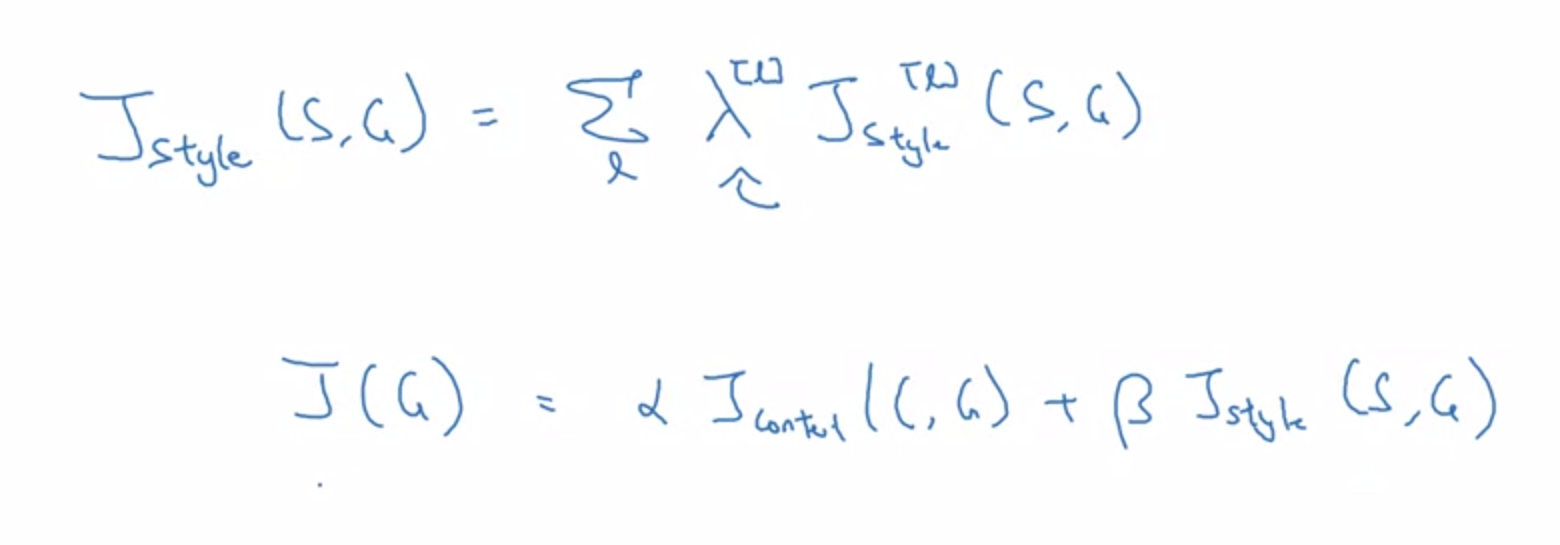 J_style (S,G) = Σ_l λ^[l] J_style^[l] (S,G)
J(G) = α J_content (C,G) + β J_style (S,G)